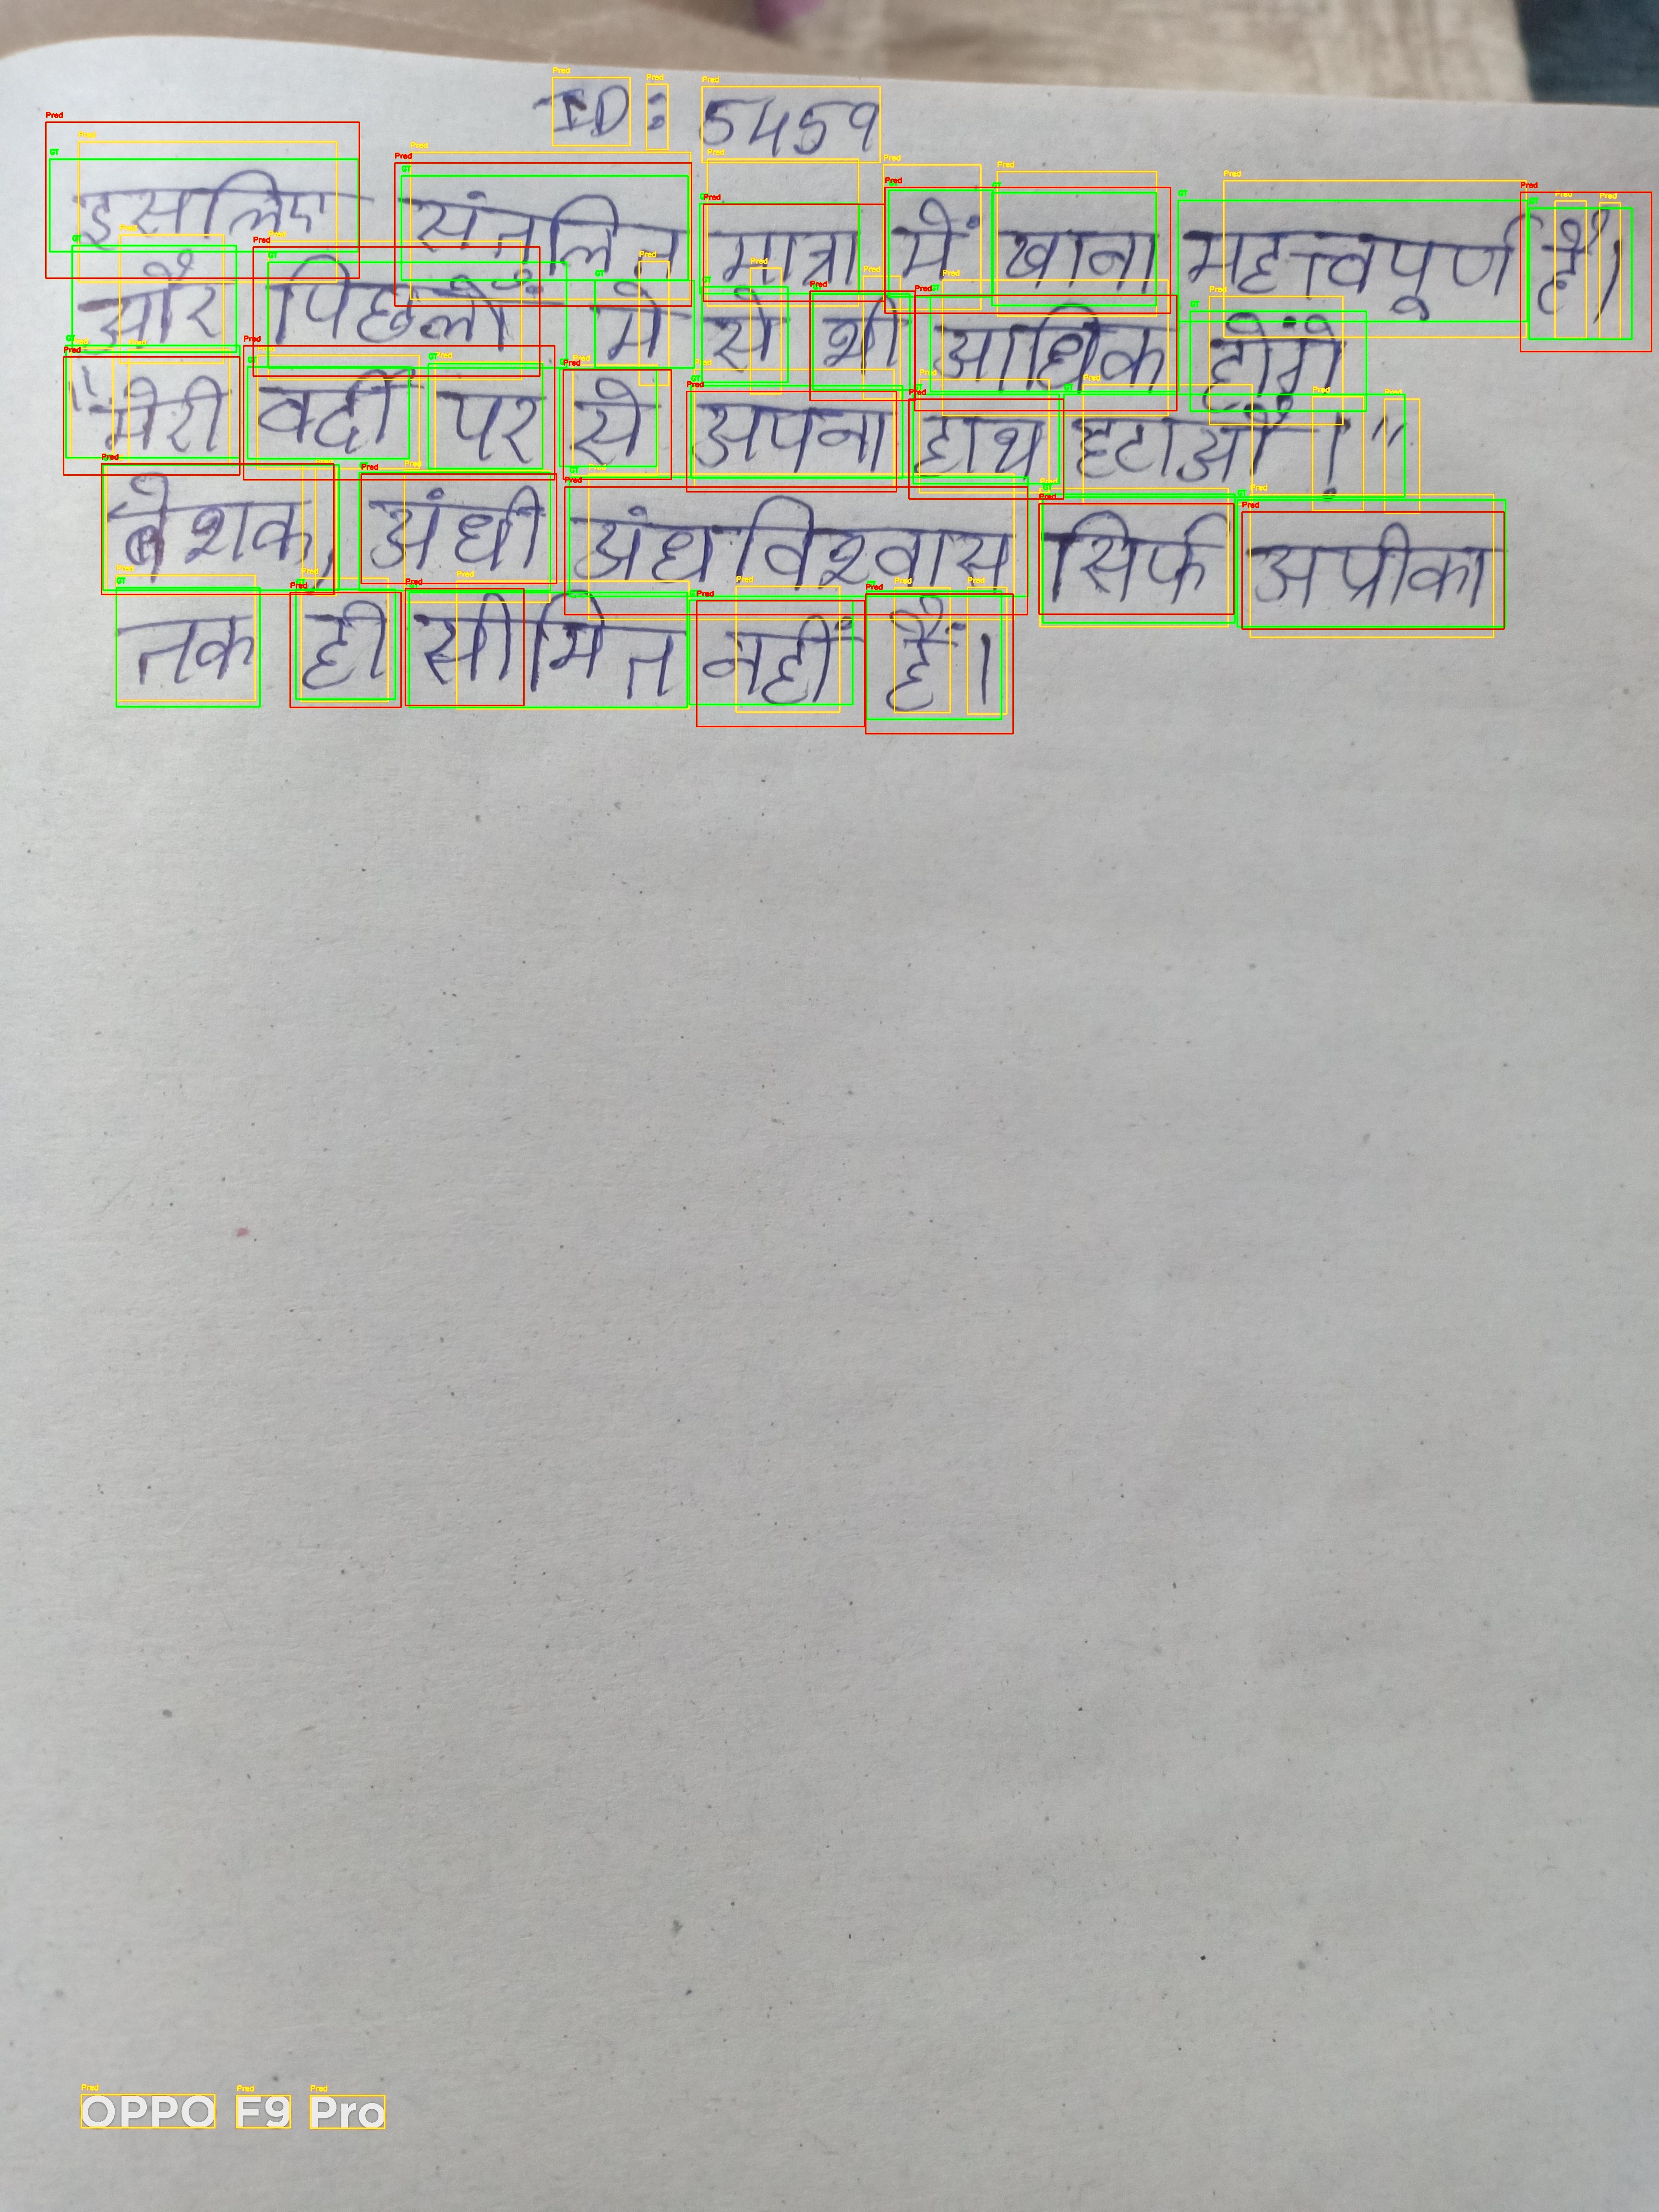 ID : 5459
इसलिए संतुलित मात्रा में खाना महत्त्वपूर्ण है।
और पिछलों में से भी अधिक होंगे
"मेरी वर्दी पर से अपना हाथ हटाओ !"
बेशक, अंधी अंधविश्वास सिर्फ अफ्रीका
तक ही सीमित नहीं हैं।
OPPO F9 Pro